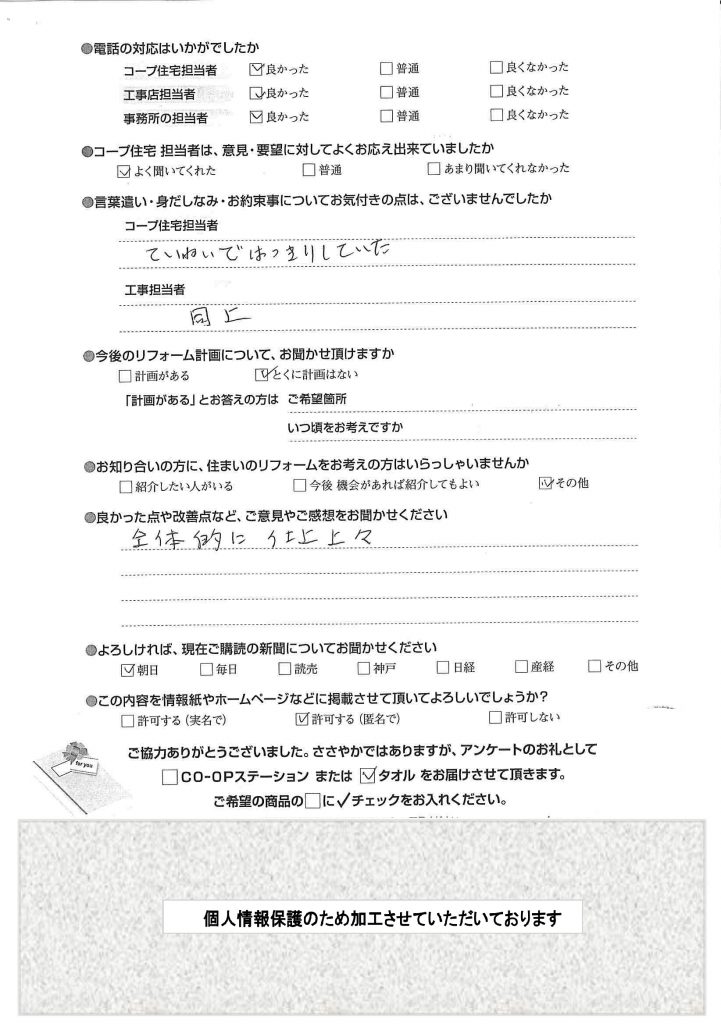 ●電話の対応はいかがでしたか
コープ住宅担当者 ☑良かった □普通 □良くなかった
工事店担当者 ☑良かった □普通 □良くなかった
事務所の担当者 ☑良かった □普通 □良くなかった
●コープ住宅 担当者は、意見・要望に対してよくお応え出来ていましたか
☑よく聞いてくれた □普通 □あまり聞いてくれなかった
●言葉遣い・身だしなみ・お約束事についてお気付きの点は、ございませんでしたか
コープ住宅担当者
ていねいではっきりしていた
工事担当者
同上
●今後のリフォーム計画について、お聞かせ頂けますか
□計画がある ☑とくに計画はない
「計画がある」とお答えの方は ご希望箇所
いつ頃をお考えですか
●お知り合いの方に、住まいのリフォームをお考えの方はいらっしゃいませんか
□紹介したい人がいる □今後 機会があれば紹介してもよい ☑その他
●良かった点や改善点など、ご意見やご感想をお聞かせください
全体的に 仕上上々
●よろしければ、現在ご購読の新聞についてお聞かせください
☑朝日 □毎日 □読売 □神戸 □日経 □産経 □その他
●この内容を情報紙やホームページなどに掲載させて頂いてよろしいでしょうか?
□許可する(実名で) ☑許可する(匿名で) □許可しない
for you
ご協力ありがとうございました。ささやかではありますが、アンケートのお礼として
□CO-OPステーション または ☑タオル をお届けさせて頂きます。
ご希望の商品の□に✓チェックをお入れください。
個人情報保護のため加工させていただいております